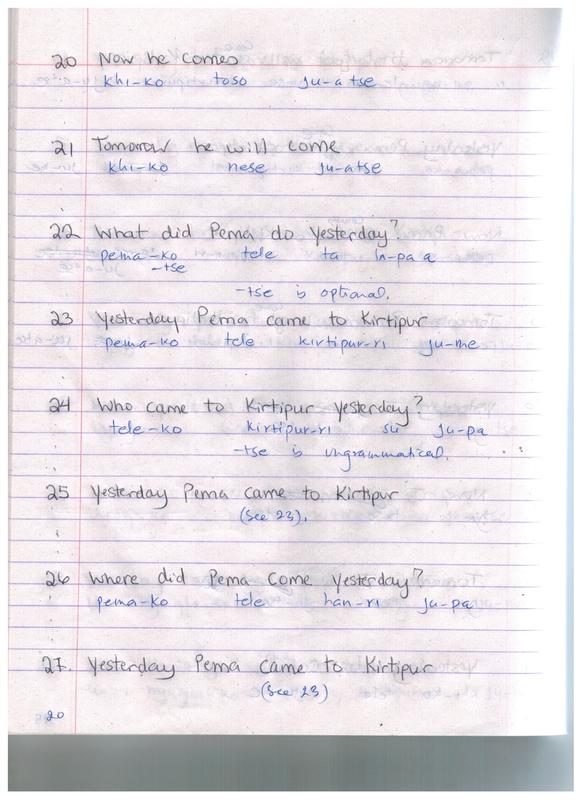 20 Now he comes
khi-ko toso ju-a tse
21 Tomorrow he will come
khi-ko nese ju-atse
22 What did Pema do yesterday?
pema-ko tele ta la-pa a
-tse
-tse is optional.
23 Yesterday Pema came to Kirtipur
pema-ko tele kirtipur-ri ju-me
24 Who came to Kirtipur yesterday?
tele-ko kirtipur-ri su ju-pa
-tse is ungrammatical.
25 Yesterday Pema came to Kirtipur
(See 23).
26 Where did Pema come yesterday?
pema-ko tele han-ri ju-pa
27. Yesterday Pema came to Kirtipur
(See 23)
20